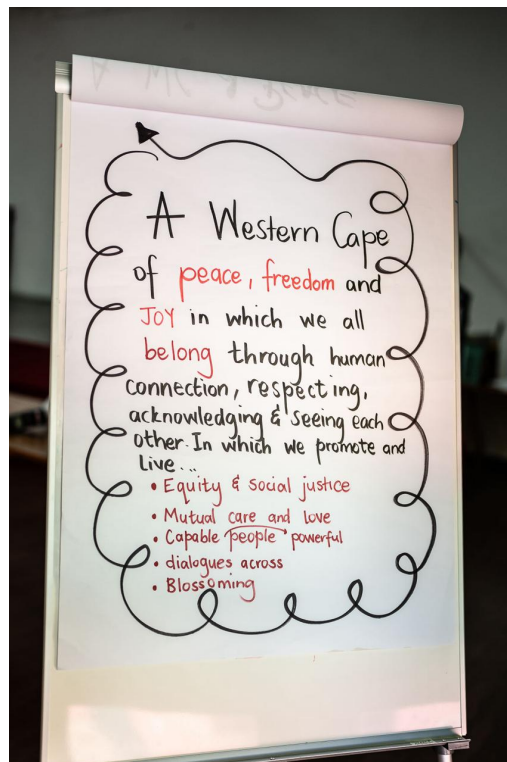 A Western Cape
of peace, freedom and
JOY in which we all
belong through human
connection, respecting,
acknowledging & seeing each
other. In which we promote and
live...
• Equity & social justice
• Mutual care and love
• Capable people powerful
• dialogues across
• Blossoming